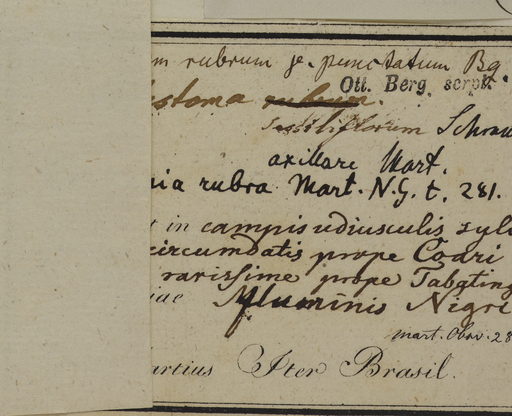 m rubrum je. punctatum Bg.
Ott. Berg. scrpt.
stoma rubrum.
sessiliflorum Schrau
axillare Mart.
nia rubra Mart. N.G. t. 281.
t in campis udiusculis sylv
circumdatis prope Coari
rarissime prope Tabating
iae fluminis Nigri
mart. Obsv. 28
artius Iter Brasil.